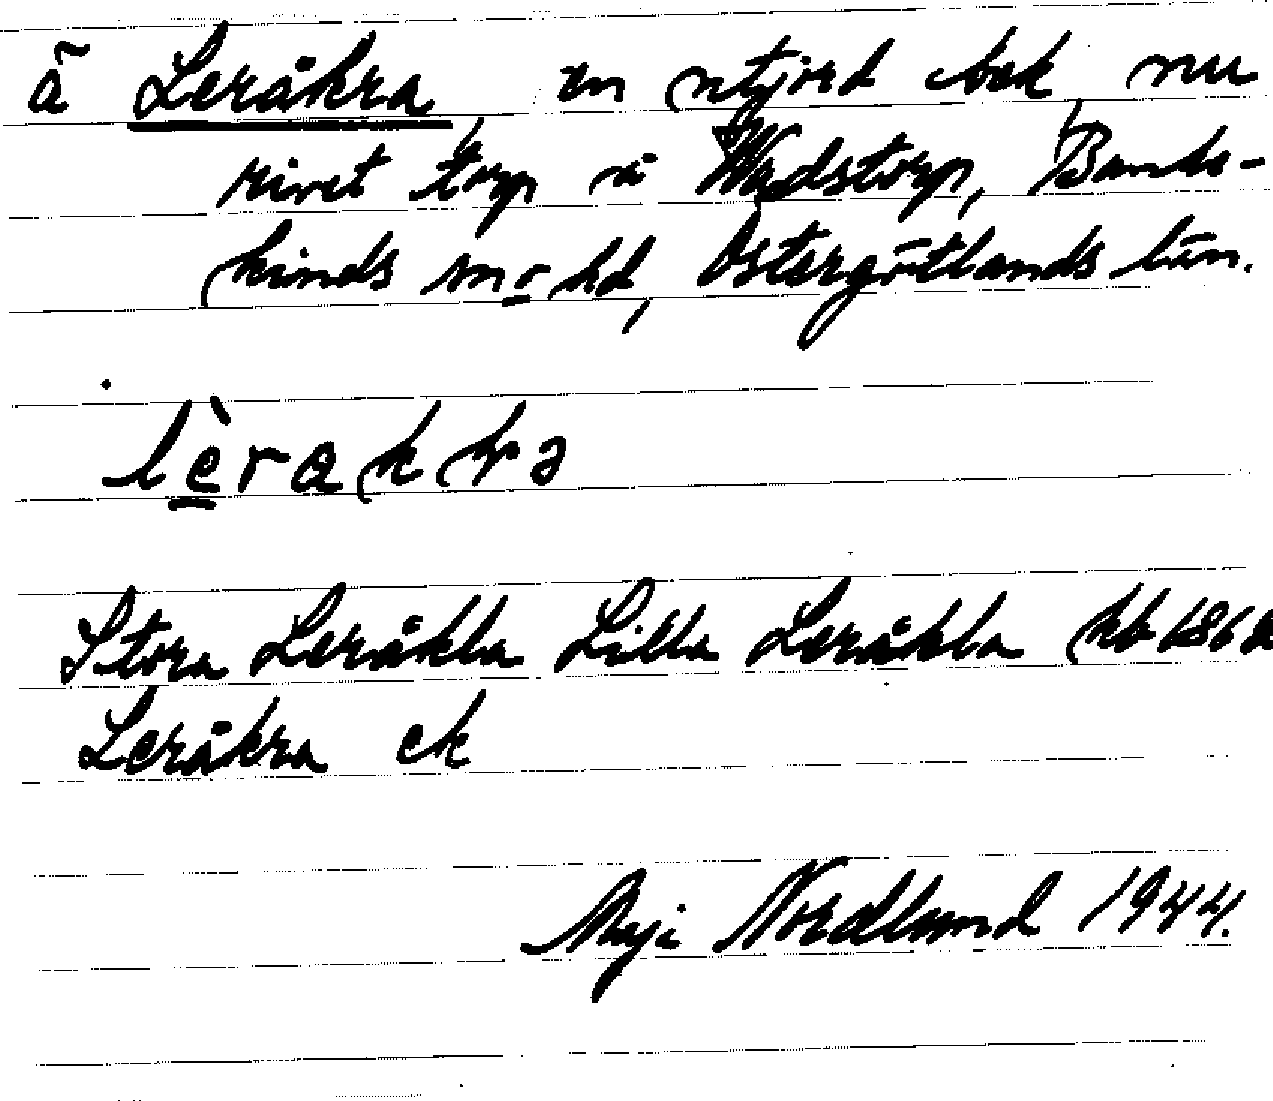 å Leråkra en utjord bak nu
rivet torp å Wadstorp, Banke-
kinds sn o hd, Östergötlands län.
lèrakra
Stora Leråkla Lilla Leråkla hb 1868
Leråkra ek
Maji Nordlund 1944.